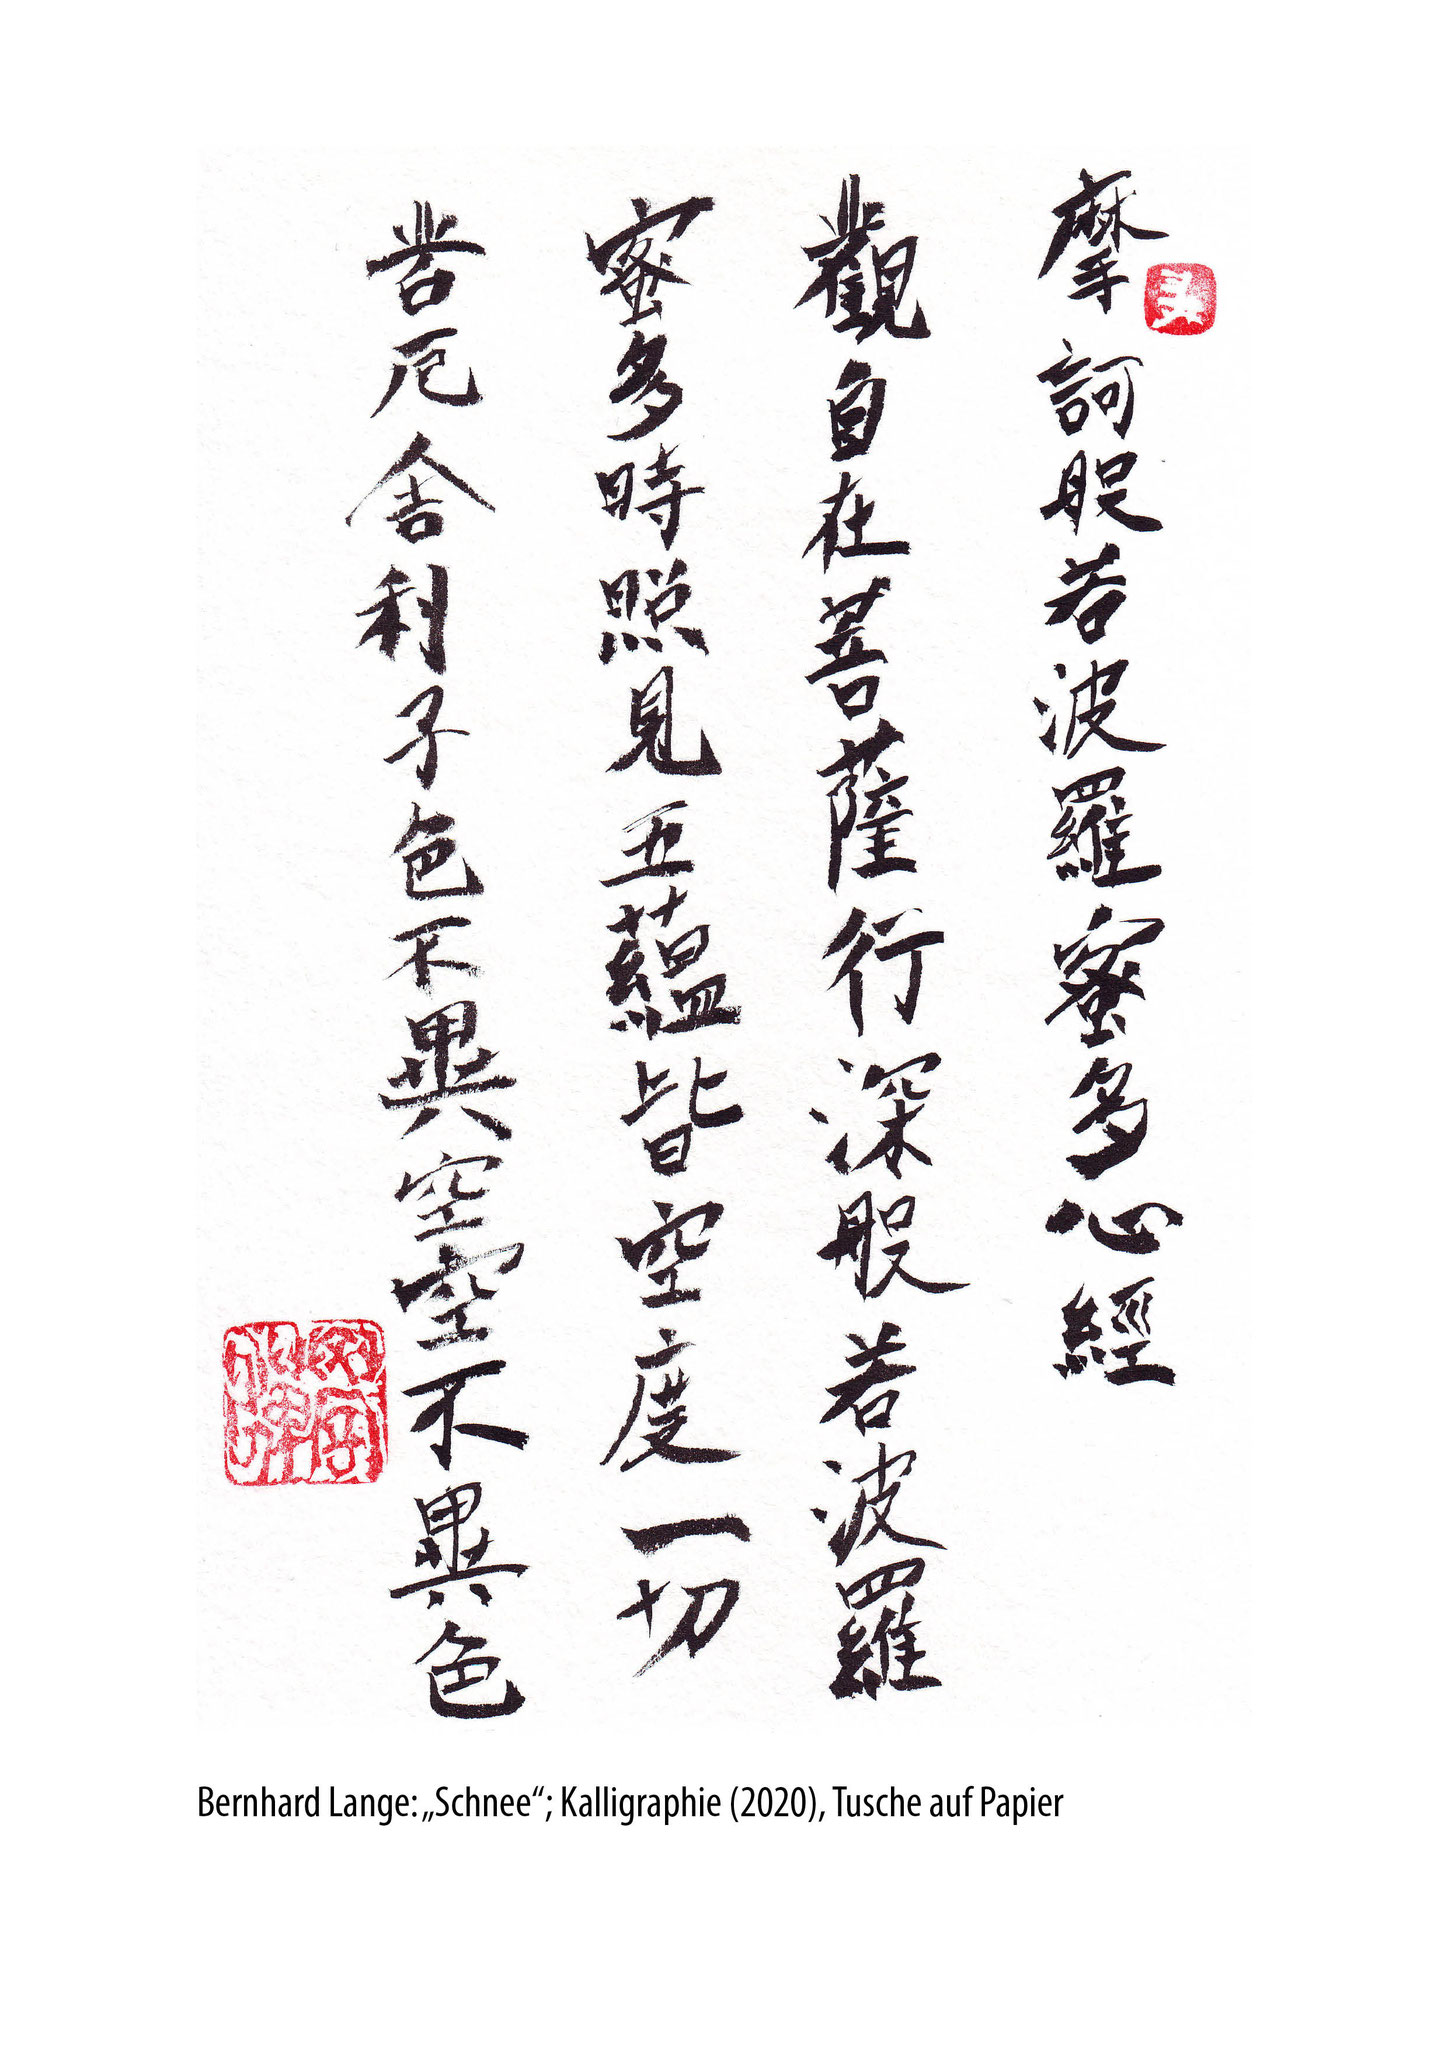 摩訶般若波羅蜜多心經
觀自在菩薩行深般若波羅
蜜多時照見五蘊皆空度一切
苦厄舍利子色不異空空不異色
Bernhard Lange: „Schnee“; Kalligraphie (2020), Tusche auf Papier